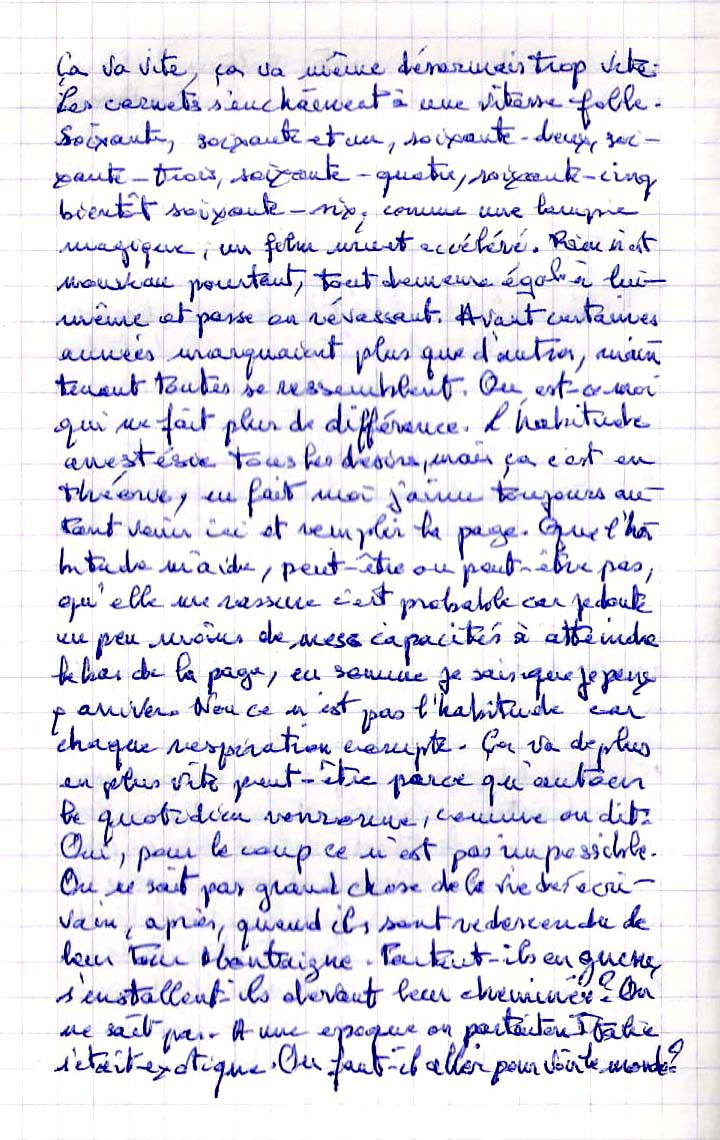 Ça va vite, ça va même désormais trop vite.
Les carnets s'enchaênent à une vitesse folle.
Soixante, soixante et un, soixante-deux, soi-
xante-trois, soixante-quatre, soixante-cinq
bientôt soixante-six, comme une lampe
magique, un film muet accéléré. Rien n'est
nouveau pourtant, tout demeure égal à lui-
même et passe en rêvassant. Avant certaines
années marquaient plus que d'autres, main
tenant toutes se ressemblent. Ou est-ce moi
qui ne fait plus de différence. L'habitude
anestésie tous les désirs, mais ça c'est en
théorie, en fait moi j'aime toujours au-
tant venir ici et remplir la page. Que l'ha
bitude m'aide, peut-être ou peut-être pas,
qu'elle me rassure c'est probable car je doute
un peu moins de mes capacités à atteindre
le bas de la page, en somme je sais que je peux
y arriver. Non ce n'est pas l'habitude car
chaque respiration compte. Ça va de plus
en plus vite peut-être parce qu'autour
le quotidien ronronne, comme on dit.
Oui, pour le coup ce n'est pas impossible.
On ne sait pas grand chose de la vie des écri-
vain, après, quand ils sont redescendu de
leur tour Montaigne. Partent-ils en guerre,
s'installent-ils devant leur cheminée? On
ne sait pas. A une époque on partait en Italie
s'était exotique. Ou faut-il aller pour voir le monde?